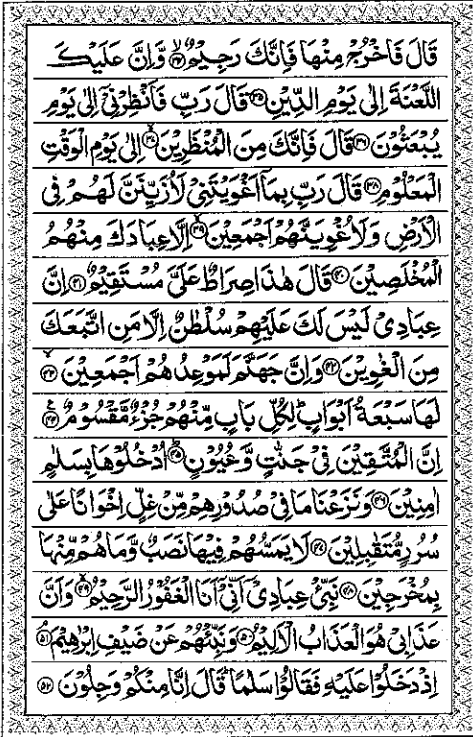 قَالَ فَاخْرُجْ مِنْهَا فَاِنَّكَ رَجِيْمٌ ۙ۳۴ وَّاِنَّ عَلَيْكَ
اللَّعْنَةَ اِلٰى يَوْمِ الدِّيْنِ ۳۵ قَالَ رَبِّ فَاَنْظِرْنِيْٓ اِلٰى يَوْمِ
يُبْعَثُوْنَ ۳۶ قَالَ فَاِنَّكَ مِنَ الْمُنْظَرِيْنَ ۙ۳۷ اِلٰى يَوْمِ الْوَقْتِ
الْمَعْلُوْمِ ۳۸ قَالَ رَبِّ بِمَآ اَغْوَيْتَنِيْ لَاُزَيِّنَنَّ لَهُمْ فِى
الْاَرْضِ وَلَاُغْوِيَنَّهُمْ اَجْمَعِيْنَ ۙ۳۹ اِلَّا عِبَادَكَ مِنْهُمُ
الْمُخْلَصِيْنَ ۴۰ قَالَ هٰذَا صِرَاطٌ عَلَيَّ مُسْتَقِيْمٌ ۴۱ اِنَّ
عِبَادِيْ لَيْسَ لَكَ عَلَيْهِمْ سُلْطٰنٌ اِلَّا مَنِ اتَّبَعَكَ
مِنَ الْغٰوِيْنَ ۴۲ وَاِنَّ جَهَنَّمَ لَمَوْعِدُهُمْ اَجْمَعِيْنَ ۙ۴۳
لَهَا سَبْعَةُ اَبْوَابٍ ؕ لِكُلِّ بَابٍ مِّنْهُمْ جُزْءٌ مَّقْسُوْمٌ ۴۴
اِنَّ الْمُتَّقِيْنَ فِيْ جَنّٰتٍ وَّعُيُوْنٍ ؕ۴۵ اُدْخُلُوْهَا بِسَلٰمٍ
اٰمِنِيْنَ ۴۶ وَنَزَعْنَا مَا فِيْ صُدُوْرِهِمْ مِّنْ غِلٍّ اِخْوَانًا عَلٰى
سُرُرٍ مُّتَقٰبِلِيْنَ ۴۷ لَا يَمَسُّهُمْ فِيْهَا نَصَبٌ وَّمَا هُمْ مِّنْهَا
بِمُخْرَجِيْنَ ۴۸ نَبِّئْ عِبَادِيْٓ اَنِّيْٓ اَنَا الْغَفُوْرُ الرَّحِيْمُ ۙ۴۹ وَاَنَّ
عَذَابِيْ هُوَ الْعَذَابُ الْاَلِيْمُ ۵۰ وَنَبِّئْهُمْ عَنْ ضَيْفِ اِبْرٰهِيْمَ ۘ۵۱
اِذْ دَخَلُوْا عَلَيْهِ فَقَالُوْا سَلٰمًا ؕ قَالَ اِنَّا مِنْكُمْ وَجِلُوْنَ ۵۲